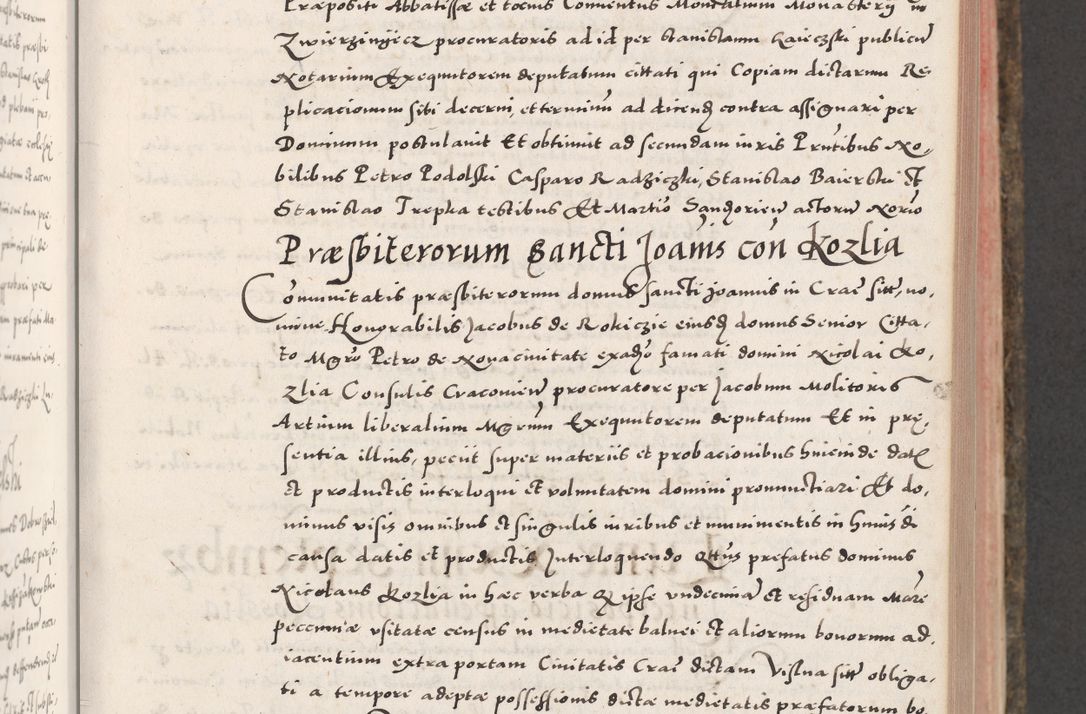 Præpositi Abbatissæ et tocius Conventus Monialium Monasterij in
Zwierzinijecz procuratoris ad id per Stanislaum Gaieczski publicu
Notarium Exequutorem deputatum cittati qui Copiam dictarum Re-
plicacionum sibi decerni, et terminum ad dicend contra assignari per
Dominum postulavit Et obtinuit ad secundam iuris Prntibus No,
bilibus Petro Podolski Casparo Radziczki, Stanislao Baierski Et
Stanislao Trepka testibus Et Martio actoru Norio
Præsbiterorum Sancti Joanis con Kozlia
Communitatis præsbiterorum domus sancti Joannis in Crac sitt, no,
mine Honorabilis Jacobus de Rokiczie eiusd domus Senior Citta,
to Mgro Petro de Novacivitate exadso famati domini Nicolai Ko,
zlia Consulis Cracovien procuratore per Jacobum Molitoris
Artium liberalium Mgrum Exequutorem deputatum Et in præ,
sentia illius, peciit super materiis et probacionibus hincinde dat
et productis interloqui et voluntatem domini pronunctiari Et do,
minus visis omnibus et singulis iuribus et munimentis in huius di
causa datis et productis Interloquendo prefatus dominus
Nicolaus Kozlia in hæc verba Q ipse undecima et residuam Mare
peccuniæ usitatæ census in medietate balnei et aliorum bonorum ad,
iacentium extra portam Civitatis Crac dictam Vislna sitt obliga,
ti a tempore adeptæ possessionis dictæ medietatis præfatorum bo